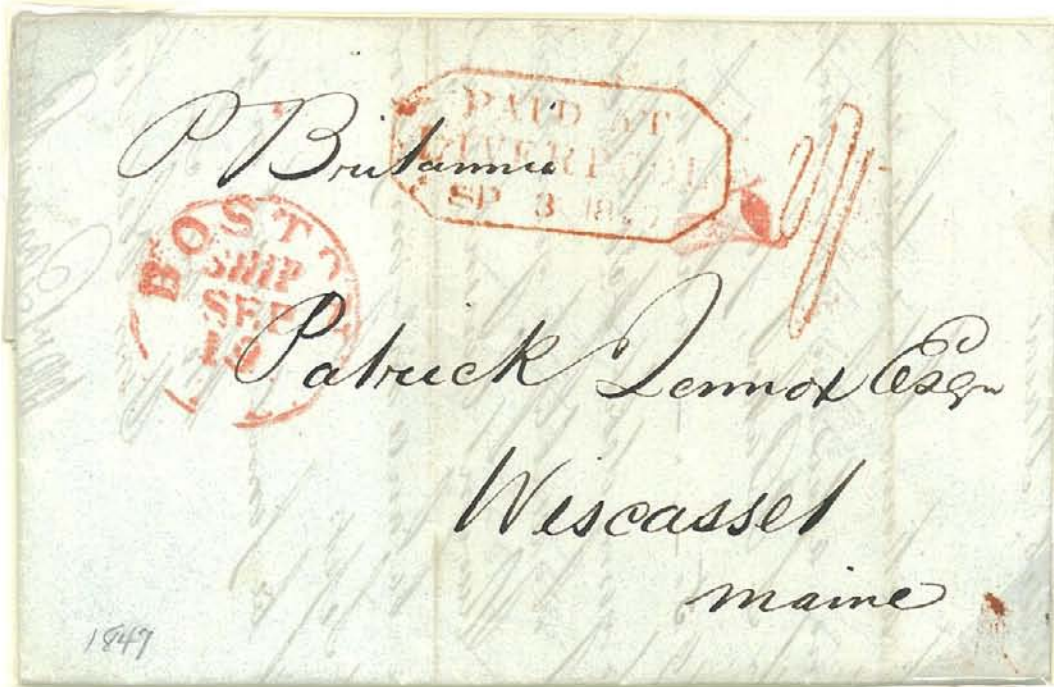 P Britannia
PAID AT
LIVERPOOL
SP 3
BOSTON
SHIP
SEP
19
Patrick Lennox Esqr
Wiscasset
maine
1847